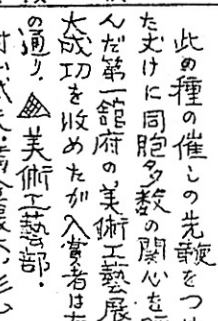 此の種の催しの先鞭をつけ
ただけに同胞多数の関心を
んだ第一館府の美術工藝展
大成功を收めたが入賞者は左
の通り．▲美術工藝部．